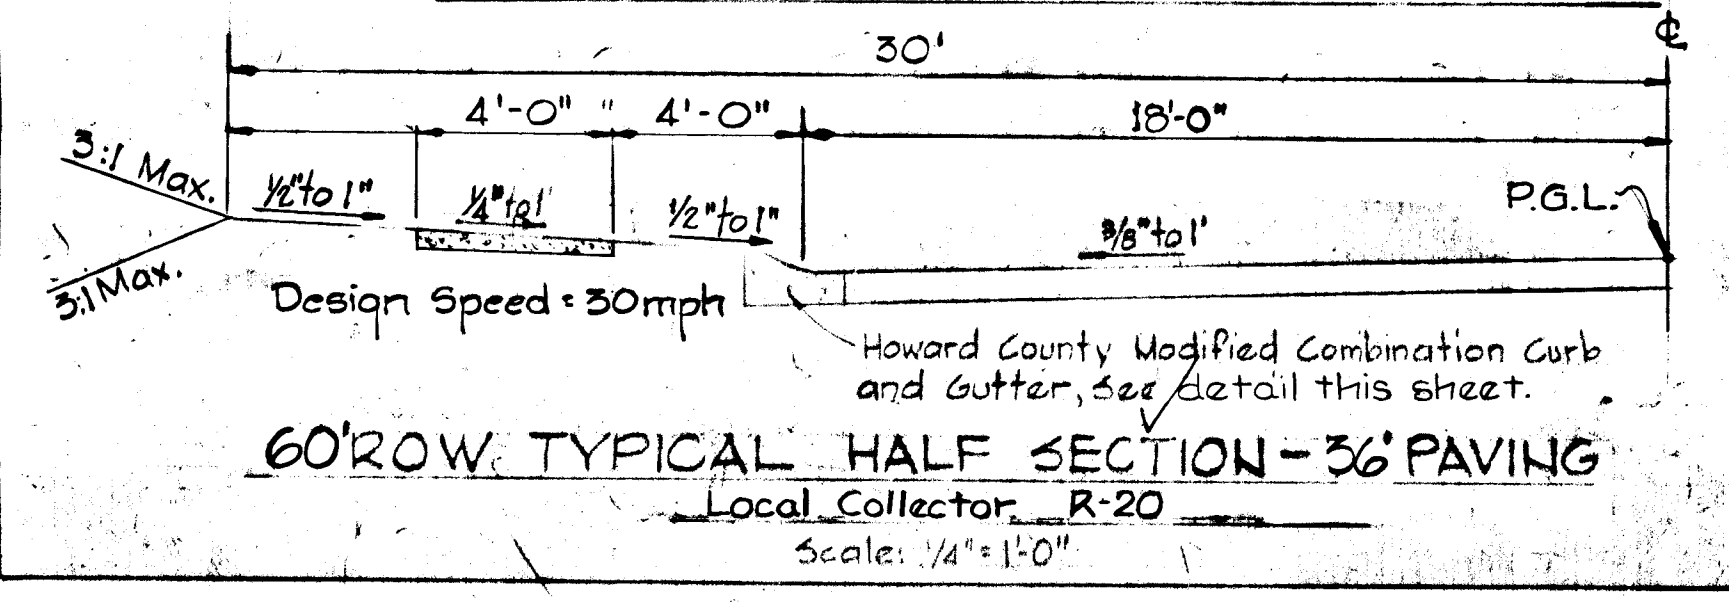 ℄
30'
4'-0" 4'-0" 18'-0"
3:1 Max.
1/2" to 1"
1/4" to 1'
1/2" to 1"
3/8" to 1'
P.G.L.
3:1 Max.
Design Speed = 30mph
Howard County Modified Combination Curb
and Gutter, See detail this sheet.
60' ROW TYPICAL HALF SECTION - 36' PAVING
Local Collector R-20
Scale: 1/4" = 1'-0"